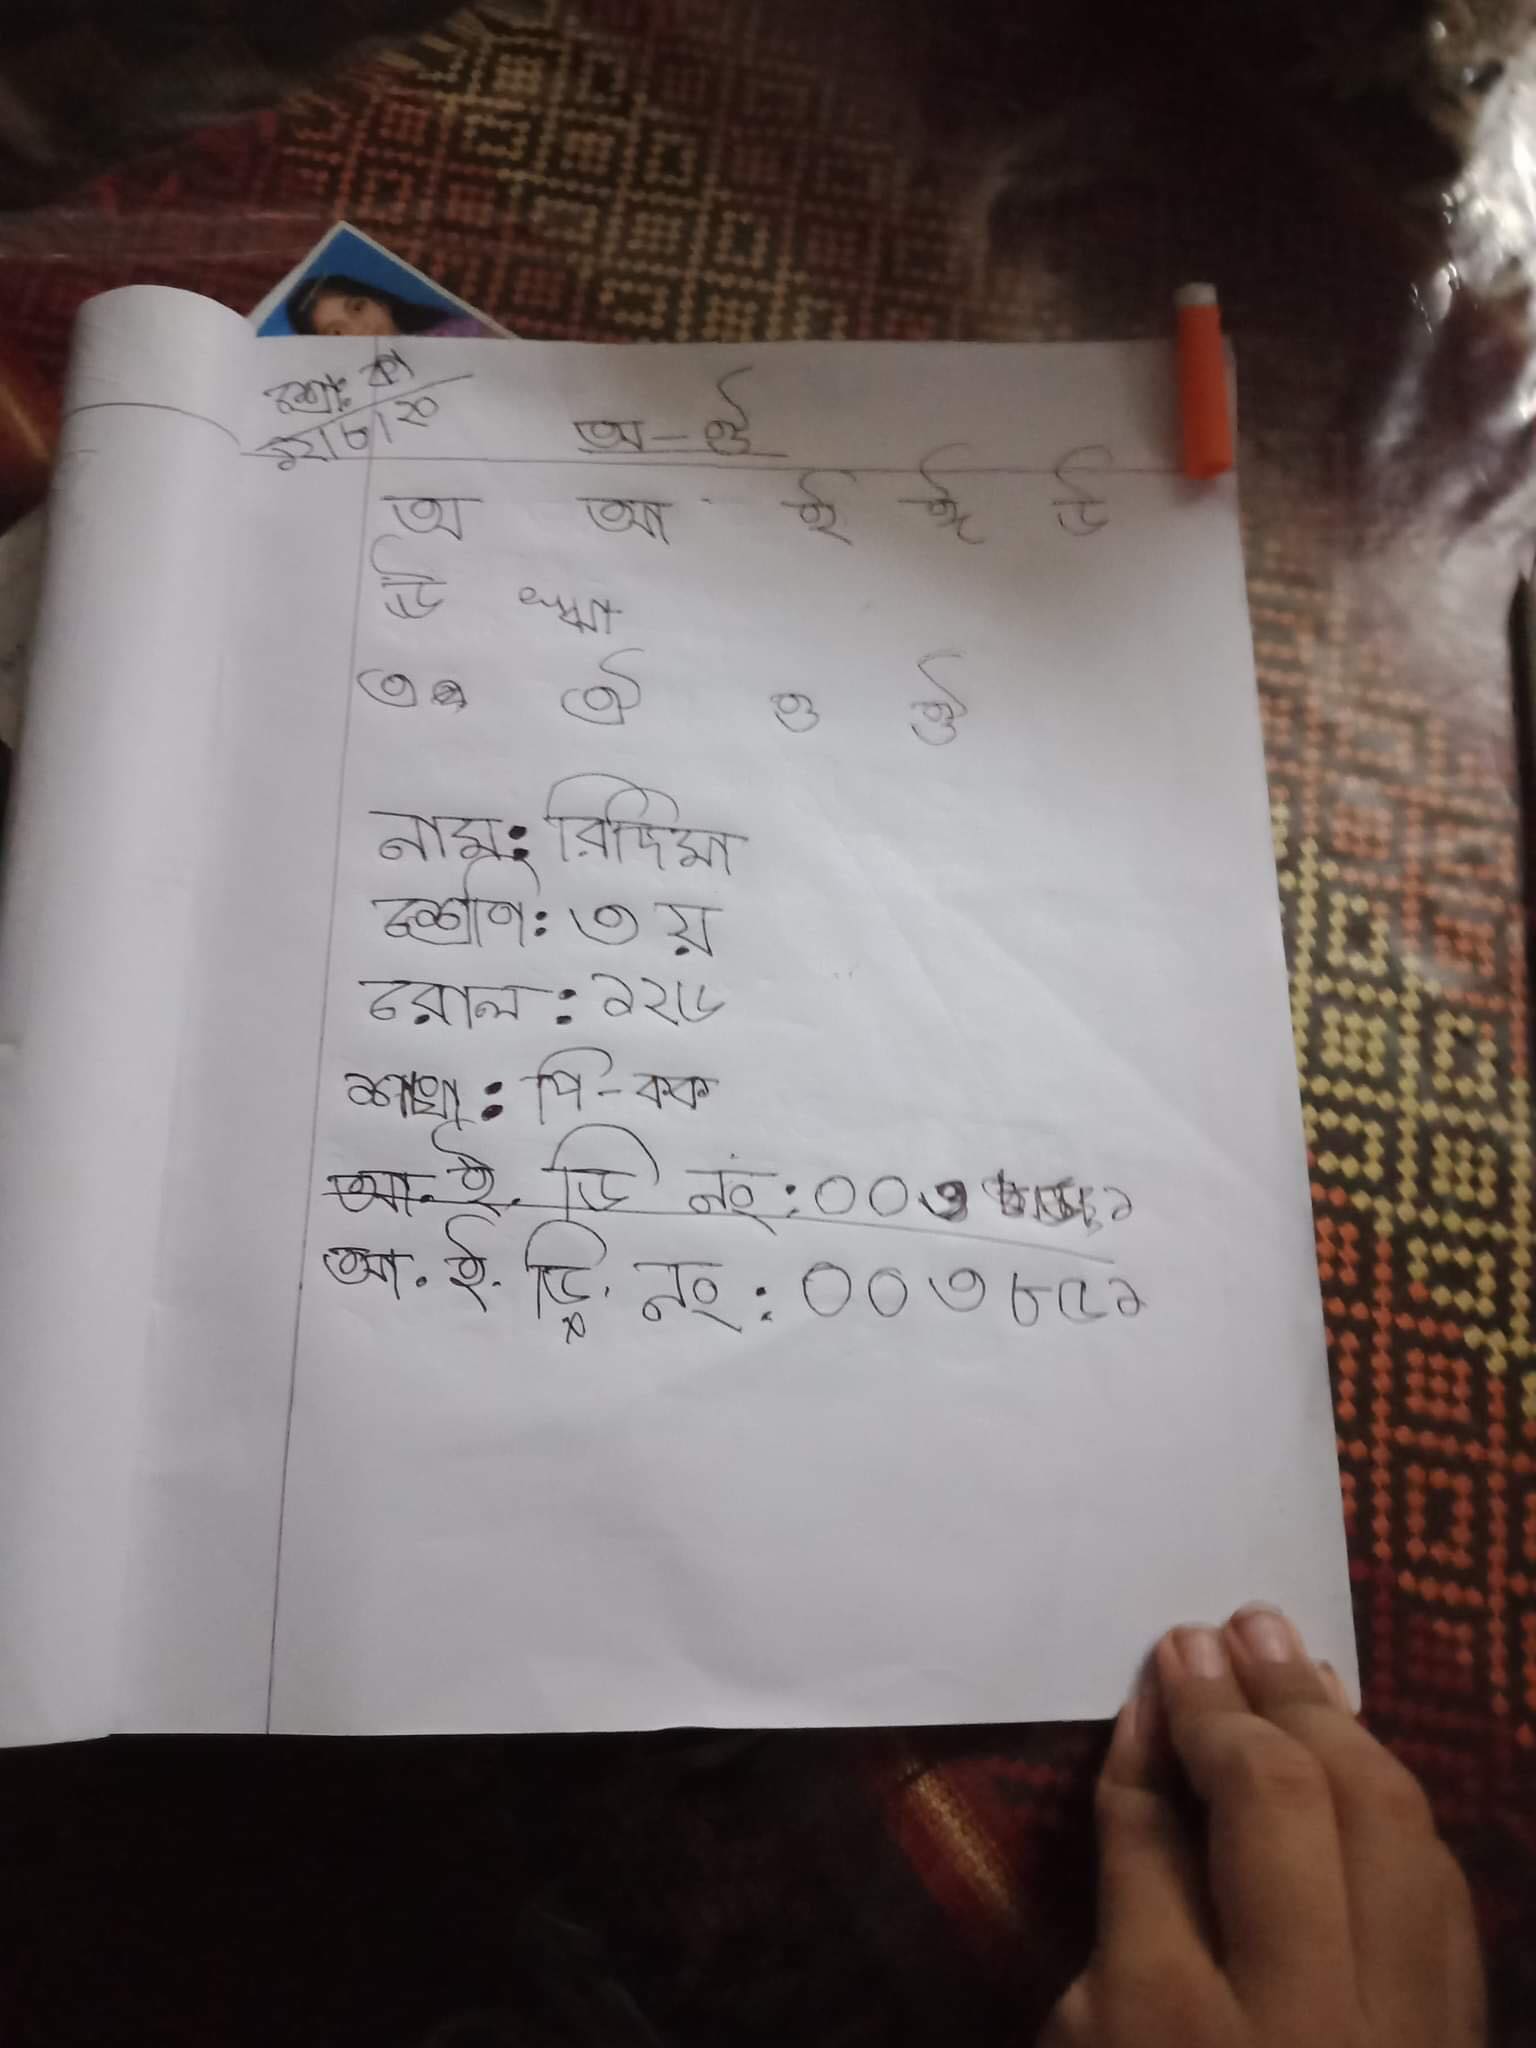 শ্রে: কা
১২/৮/২০
অ-ঔ
অ আ ই ঈ উ
ঊ ঋ
এ ঐ ও ঔ
নাম: রিদিমা
শ্রেণি: ৩ য়
রোল: ১২৬
শাখা: পি-কক
আ.ই. ডি নং: ০০৩
আ.ই.ডি. নং: ০০৩৮৫১